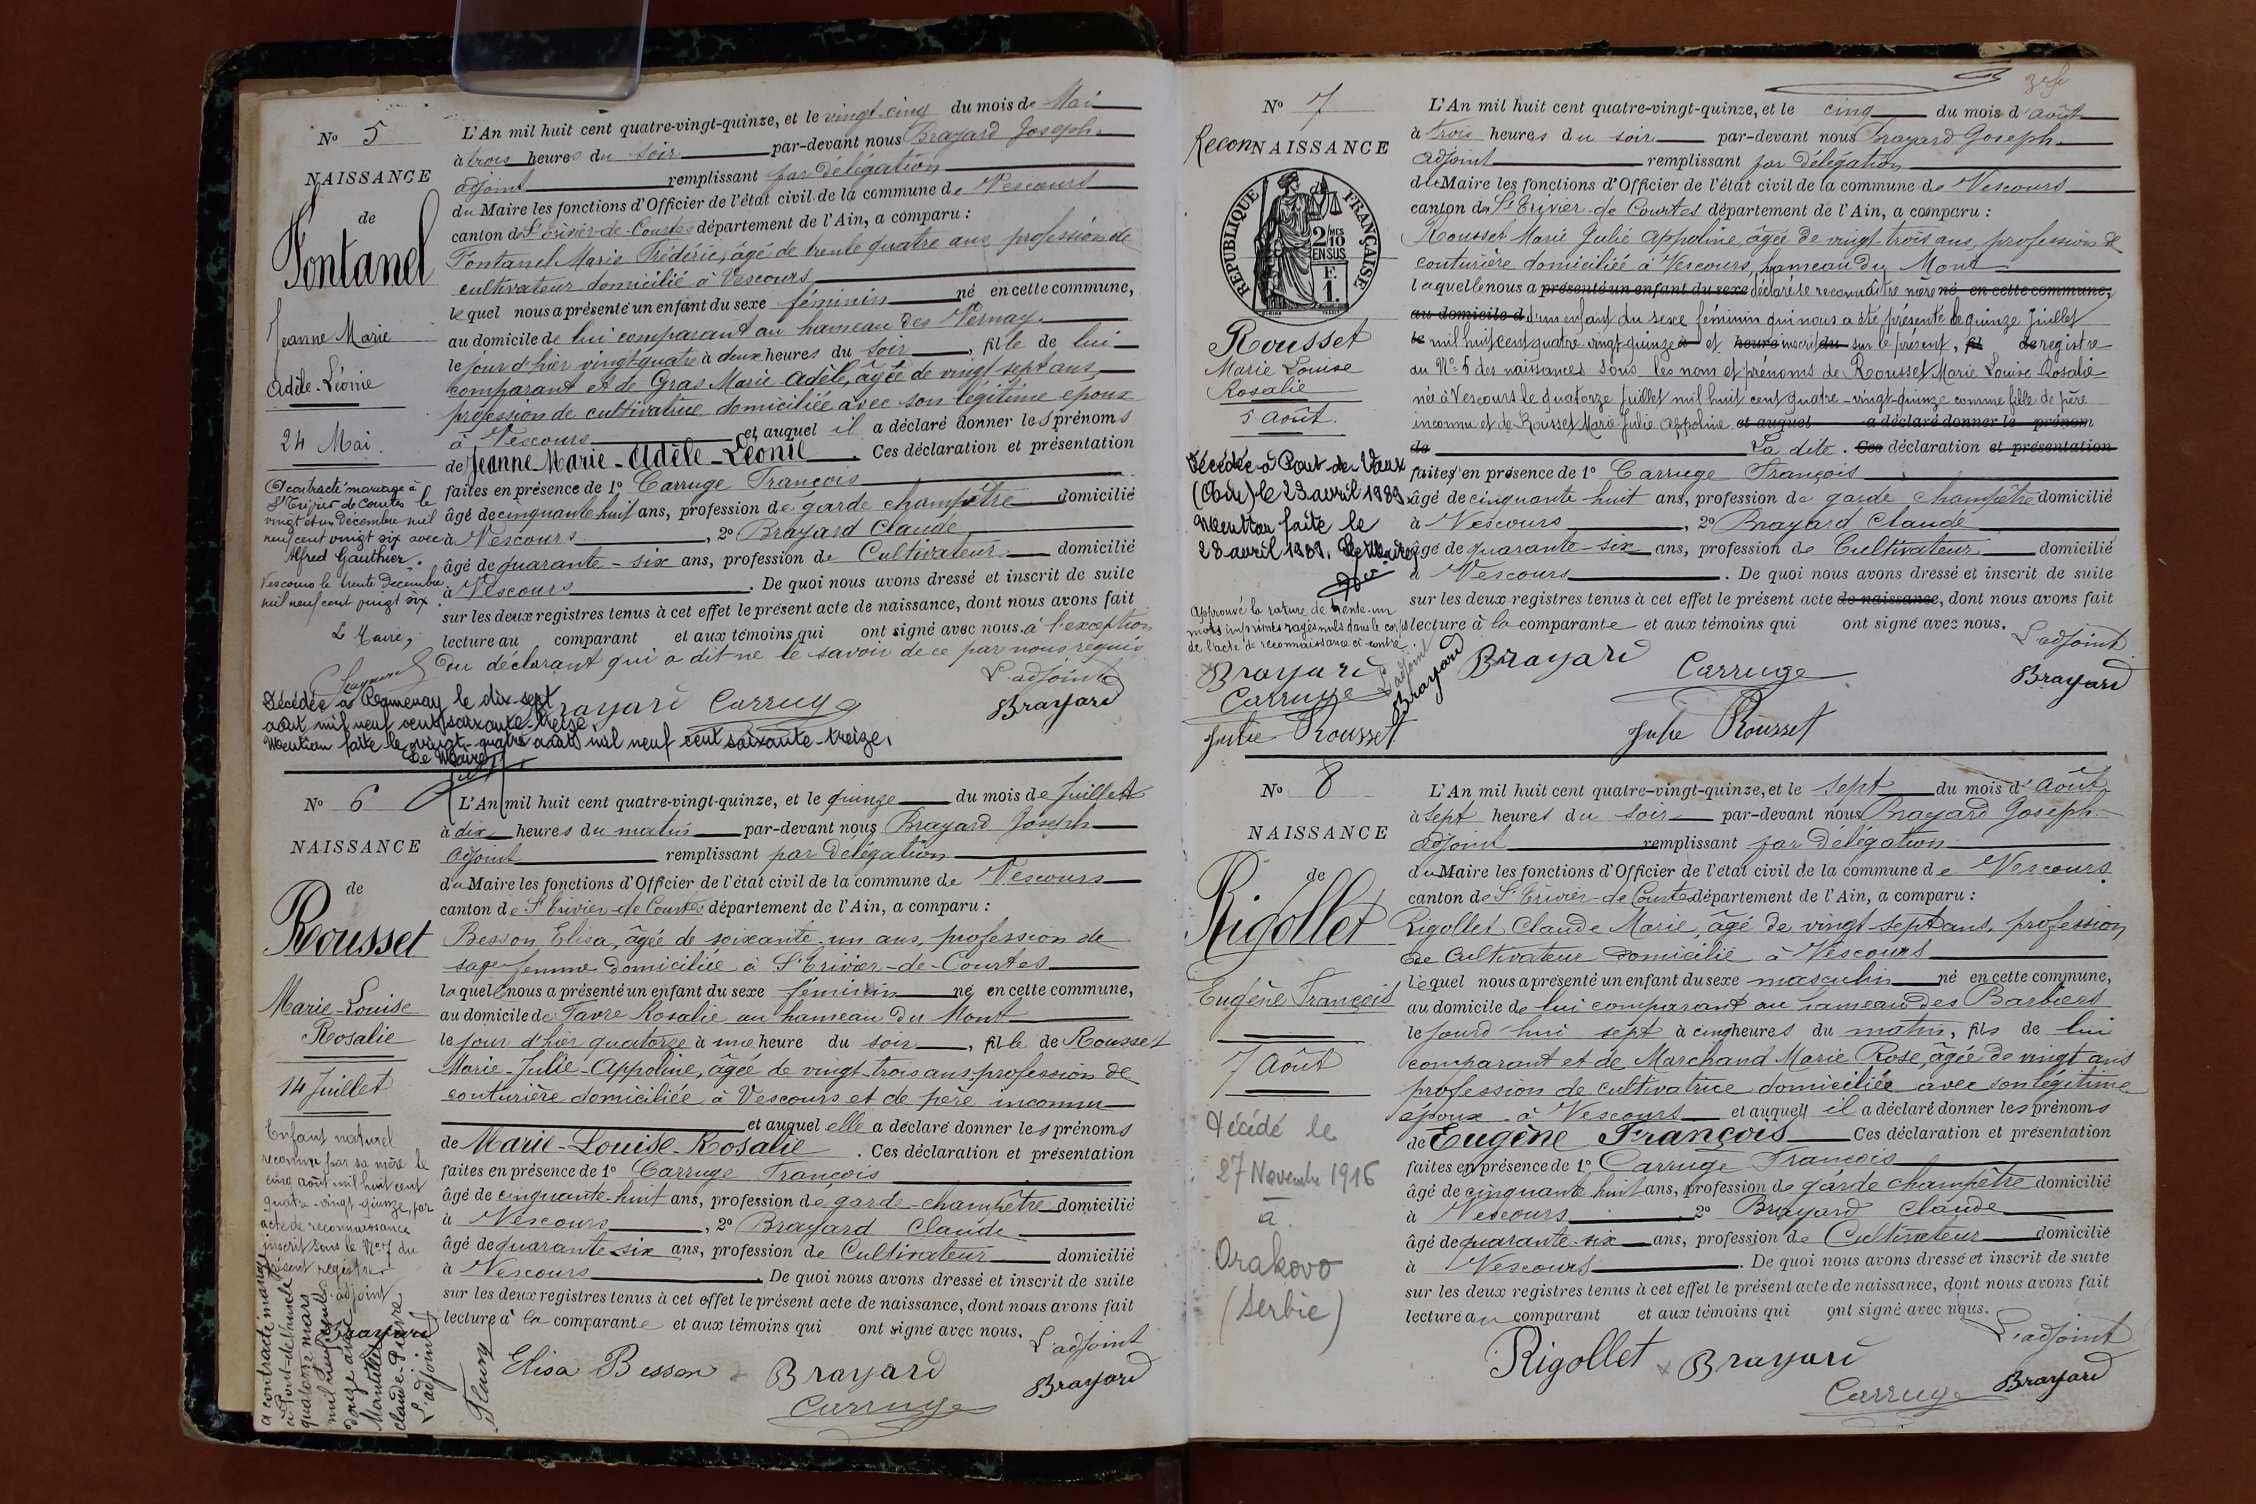 N° 5
NAISSANCE
de
Fontanel
Jeanne Marie
Adèle-Léonie
24 Mai.
A contracté mariage à
St Trivier de Courtes le
vingt et un Decembre mil
neuf cent vingt six avec
Alfred Gauthier.
Vescours le trente Decembre
mil neuf cent vingt six
Le Maire,
L'An mil huit cent quatre-vingt-quinze, et le vingt-cinq du mois de Mai
à trois heures du soir par-devant nous Brayard Joseph
adjoint remplissant par délégation
du Maire les fonctions d'Officier de l'état civil de la commune de Vescours
canton de St Trivier-de-Courtes département de l'Ain, a comparu :
Fontanel Marie Frédéric, âgé de trente quatre ans profession de
cultivateur domicilié à Vescours
lequel nous a présenté un enfant du sexe féminin né en cette commune,
au domicile de lui comparant au hameau des Vernay
le jour d'hier vingt-quatre à deux heures du soir, fille de lui
comparant et de Gras Marie Adèle, âgée de vingt sept ans,
profession de cultivatrice domiciliée avec son légitime époux
à Vescours et auquel il a déclaré donner les prénoms
de Jeanne Marie-Adèle-Léonie. Ces déclaration et présentation
faites en présence de 1° Carruge François
âgé de cinquante huit ans, profession de garde champêtre domicilié
à Vescours, 2° Brayard Claude
âgé de quarante-six ans, profession de Cultivateur domicilié
à Vescours. De quoi nous avons dressé et inscrit de suite
sur les deux registres tenus à cet effet le présent acte de naissance, dont nous avons fait
lecture au comparant et aux témoins qui ont signé avec nous. à l'exception
du déclarant qui a dit ne le savoir de ce par nous requis
L'adjoint
Brayard Carruge Brayard
Décédée à Romenay le dix-sept
août mil neuf cent soixante-treize.
Mention faite le vingt-quatre août mil neuf cent soixante-treize,
Le Maire,
N° 6
NAISSANCE
de
Rousset
Marie-Louise
Rosalie
14 Juillet
Enfant naturel
reconnu par sa mère le
cinq août mil huit cent
quatre-vingt quinze, par
acte de reconnaissance
inscrit sous le N° 7 du
présent registre
adjoint
Brayard
a contracté mariage
à Pont-de-
quatorze mars
mil neuf cent
douze avec
Claude-Pierre
L'adjoint
L'An mil huit cent quatre-vingt-quinze, et le quinze du mois de Juillet
à dix heures du matin par-devant nous Brayard Joseph
adjoint remplissant par délégation
du Maire les fonctions d'Officier de l'état civil de la commune de Vescours
canton de St Trivier-de-Courtes département de l'Ain, a comparu :
Besson Elisa, âgée de soixante-un ans, profession de
sage-femme domiciliée à St Trivier-de-Courtes
laquelle nous a présenté un enfant du sexe féminin né en cette commune,
au domicile de Favre Rosalie au hameau du Mont
le jour d'hier quatorze à une heure du soir, fille de Rousset
Marie-Julie-Appoline, âgée de vingt-trois ans profession de
couturière domiciliée à Vescours et de père inconnu
et auquel elle a déclaré donner les prénoms
de Marie-Louise-Rosalie. Ces déclaration et présentation
faites en présence de 1° Carruge François
âgé de cinquante-huit ans, profession de garde-champêtre domicilié
à Vescours, 2° Brayard Claude
âgé de quarante six ans, profession de Cultivateur domicilié
à Vescours. De quoi nous avons dressé et inscrit de suite
sur les deux registres tenus à cet effet le présent acte de naissance, dont nous avons fait
lecture à la comparante et aux témoins qui ont signé avec nous.
L'adjoint
Elisa Besson Brayard Brayard
Carruge
N° 7
ReconNAISSANCE
RÉPUBLIQUE FRANÇAISE
2/10 MES
EN SUS
F.
1.
Rousset
Marie Louise
Rosalie
5 Août.
Décédée à Pont-de-Vaux
(Ain) le 23 avril 1983
Mention faite le
28 avril 1983. Le Maire,
Approuvé la rature de trente-un
mots imprimés rayés nuls dans le corps
de l'acte de reconnaissance ci contre.
Brayard
Carruge L'adjoint Brayard
Julie Rousset
L'An mil huit cent quatre-vingt-quinze, et le cinq du mois d'août
à trois heures du soir par-devant nous Brayard Joseph
adjoint remplissant par délégation
du Maire les fonctions d'Officier de l'état civil de la commune de Vescours
canton de St Trivier-de-Courtes département de l'Ain, a comparu :
Rousset Marie Julie Appoline âgée de vingt-trois ans, profession de
couturière domiciliée à Vescours, hameau du Mont
laquelle nous a présenté un enfant du sexe déclaré se reconnaître mère né en cette commune,
au domicile d d'un enfant du sexe féminin qui nous a été présenté le quinze Juillet
le mil huit cent quatre-vingt-quinze à et heure inscrit du sur le présent, fil de registre
au N° 6 des naissances sous les nom et prénoms de Rousset Marie Louise Rosalie
née à Vescours le quatorze Juillet mil huit cent quatre-vingt-quinze comme fille de père
inconnu et de Rousset Marie Julie Appoline et auquel a déclaré donner le prénom
de La dite. Ces déclaration et présentation
faites en présence de 1° Carruge François
âgé de cinquante huit ans, profession de garde champêtre domicilié
à Vescours, 2° Brayard Claude
âgé de quarante-six ans, profession de Cultivateur domicilié
à Vescours. De quoi nous avons dressé et inscrit de suite
sur les deux registres tenus à cet effet le présent acte de naissance, dont nous avons fait
lecture à la comparante et aux témoins qui ont signé avec nous.
L'adjoint
Brayard Carruge Brayard
Julie Rousset
N° 8
NAISSANCE
de
Rigollet
Eugène François
7 Août
Décédé le
27 Novembre 1916
à
Orakovo
(Serbie)
L'An mil huit cent quatre-vingt-quinze, et le sept du mois d'Août
à sept heures du soir par-devant nous Brayard Joseph
adjoint remplissant par délégation
du Maire les fonctions d'Officier de l'état civil de la commune de Vescours
canton de St Trivier-de-Courtes département de l'Ain, a comparu :
Rigollet Claude Marie, âgé de vingt sept ans, profession
de Cultivateur domicilié à Vescours
lequel nous a présenté un enfant du sexe masculin né en cette commune,
au domicile de lui comparant au hameau des Barbiers
le jourd'hui sept à cinq heures du matin, fils de lui
comparant et de Marchand Marie Rose, âgée de vingt ans
profession de cultivatrice domiciliée avec son légitime
époux à Vescours et auquel il a déclaré donner les prénoms
de Eugène François Ces déclaration et présentation
faites en présence de 1° Carruge François
âgé de cinquante huit ans, profession de garde champêtre domicilié
à Vescours 2° Brayard Claude
âgé de quarante-six ans, profession de Cultivateur domicilié
à Vescours. De quoi nous avons dressé et inscrit de suite
sur les deux registres tenus à cet effet le présent acte de naissance, dont nous avons fait
lecture au comparant et aux témoins qui ont signé avec nous.
L'adjoint
Rigollet Brayard Brayard
Carruge